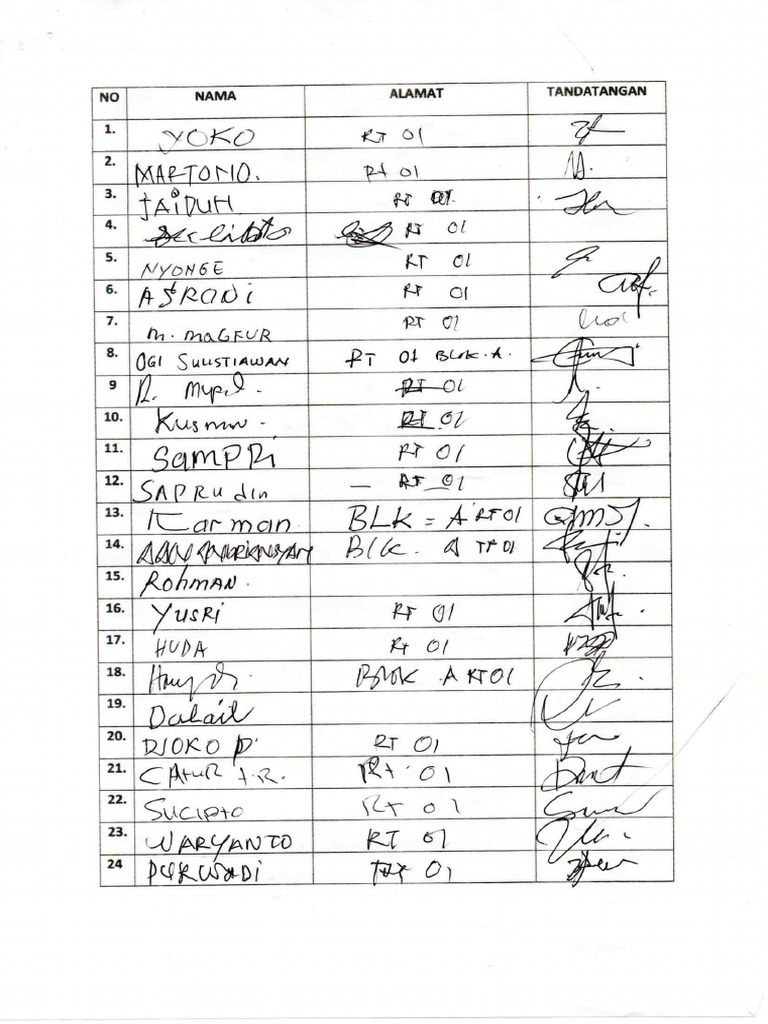 NO NAMA ALAMAT TANDATANGAN
1. YOKO RT 01
2. MARTONO. Rt 01
3. JAIDUH RT 01
4. RT 01
5. NYONGE RT 01
6. ASRODI RT 01
7. M. MAGFUR RT 01
8. OGI SULISTIAWAN RT 01 BLOK. A.
9 R. RT 01
10. Kusmin. RT 01
11. SAMPRi RT 01
12. SAPRUdin – RT 01
13. Karman BLK = A RT 01
14. Blk. A 01
15. ROHMAN.
16. YUSRi RT 01
17. HUDA Rt 01
18. BLOK A RT 01
19. Dalail
20. DJOKO P. RT 01
21. CATUR t.R. Rt. 01
22. SUCIPTO Rt 01
23. WARYANTO RT 01
24 PURWADI 01